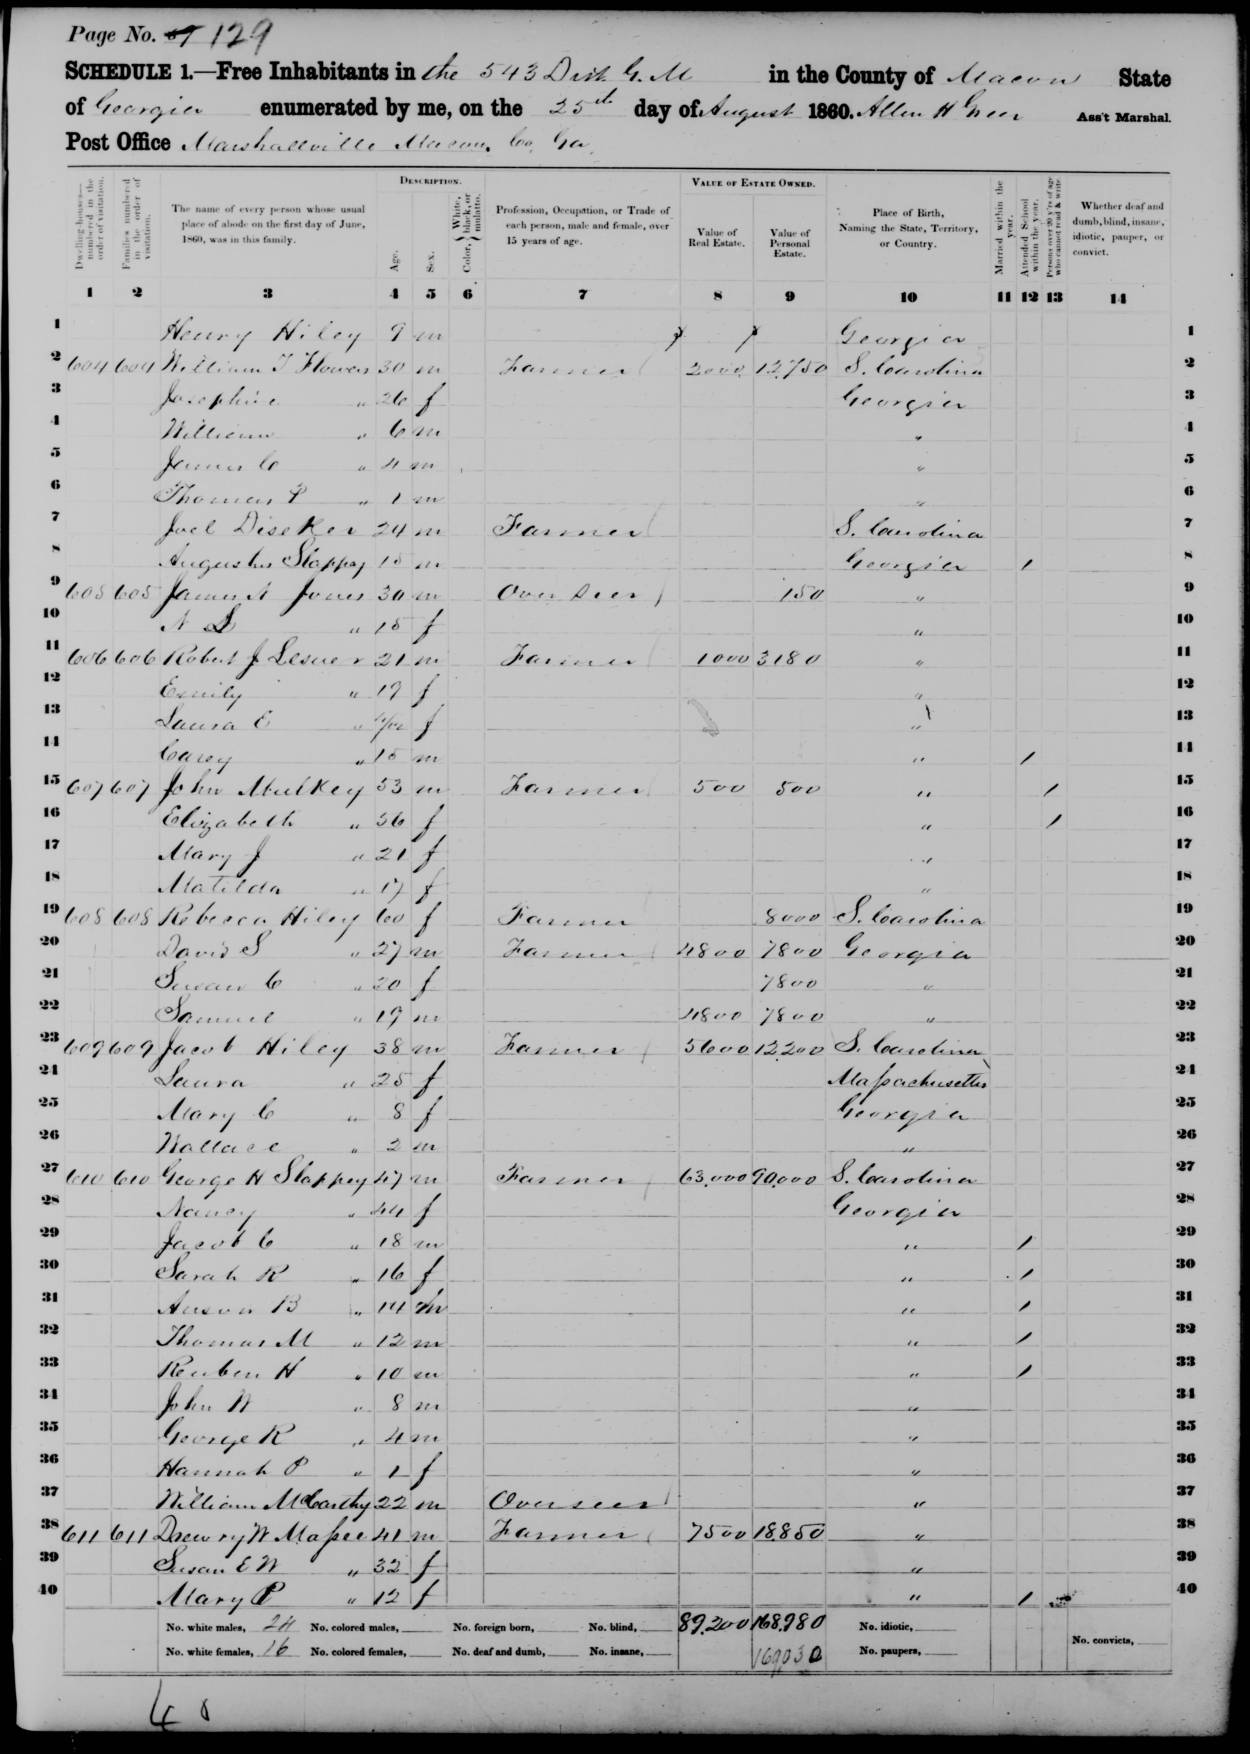 Page No. 129
SCHEDULE 1.—Free Inhabitants in the 543 Dist G. M in the County of Macon State
of Georgia enumerated by me, on the 25th day of August 1860. Allen H Greer Ass't Marshal.
Post Office Marshallville Macon, Co, Ga,
Dwelling-houses—numbered in the order of visitation.
Families numbered in the order of visitation.
The name of every person whose usual place of abode on the first day of June, 1860, was in this family.
DESCRIPTION.
Age.
Sex.
Color, White, black, or mulatto.
Profession, Occupation, or Trade of each person, male and female, over 15 years of age.
VALUE OF ESTATE OWNED.
Value of Real Estate.
Value of Personal Estate.
Place of Birth, Naming the State, Territory, or Country.
Married within the year.
Attended School within the year.
Persons over 20 y'rs of age who cannot read & write.
Whether deaf and dumb, blind, insane, idiotic, pauper, or convict.
1 2 3 4 5 6 7 8 9 10 11 12 13 14
1 Henry Hiley 9 m Georgia 1
2 604 604 William T Flowers 30 m Farmer 2000 12,750 S. Carolina 2
3 Josephine " 26 f Georgia 3
4 William " 6 m " 4
5 James C " 4 m " 5
6 Thomas P " 1 m " 6
7 Joel Diseker 24 m Farmer S. Carolina 7
8 Augustus Slappey 15 m Georgia / 8
9 605 605 James A Jones 30 m Overseer 150 " 9
10 N " 15 f " 10
11 606 606 Robert J Lesuer 21 m Farmer 1000 3180 " 11
12 Emily " 19 f " 12
13 Laura E " f " 13
14 Carey " 15 m " / 14
15 607 607 John Mulkey 53 m Farmer 500 500 " / 15
16 Elizabeth " 56 f " / 16
17 Mary J " 21 f " 17
18 Matilda " 17 f " 18
19 608 608 Rebecca Hiley 60 f Farmer 8000 S. Carolina 19
20 David S " 27 m Farmer 4800 7800 Georgia 20
21 Susan C " 20 f 7800 " 21
22 Samuel " 19 m 4800 7800 " 22
23 609 609 Jacob Hiley 38 m Farmer 5600 12200 S. Carolina 23
24 Laura " 25 f Massachusetts 24
25 Mary C " 8 f Georgia 25
26 Wallace " 2 m " 26
27 610 610 George H Slappey 47 m Farmer 63,000 90,000 S. Carolina 27
28 Nancy " 44 f Georgia 28
29 Jacob C " 18 m " / 29
30 Sarah R " 16 f " / 30
31 Anson B " 14 m " / 31
32 Thomas M " 12 m " / 32
33 Reuben H " 10 m " / 33
34 John W " 8 m " 34
35 George R " 4 m " 35
36 Hannah P " 1 f " 36
37 William McCarthy 22 m Overseer " 37
38 611 611 Drewry W Massee 41 m Farmer 7500 18850 " 38
39 Susan E W " 32 f " 39
40 Mary P " 12 f " / 40
No. white males, 24 No. colored males, No. foreign born, No. blind, 89,200 168,980 No. idiotic,
No. white females, 16 No. colored females, No. deaf and dumb, No. insane, 169030 No. paupers, No. convicts,